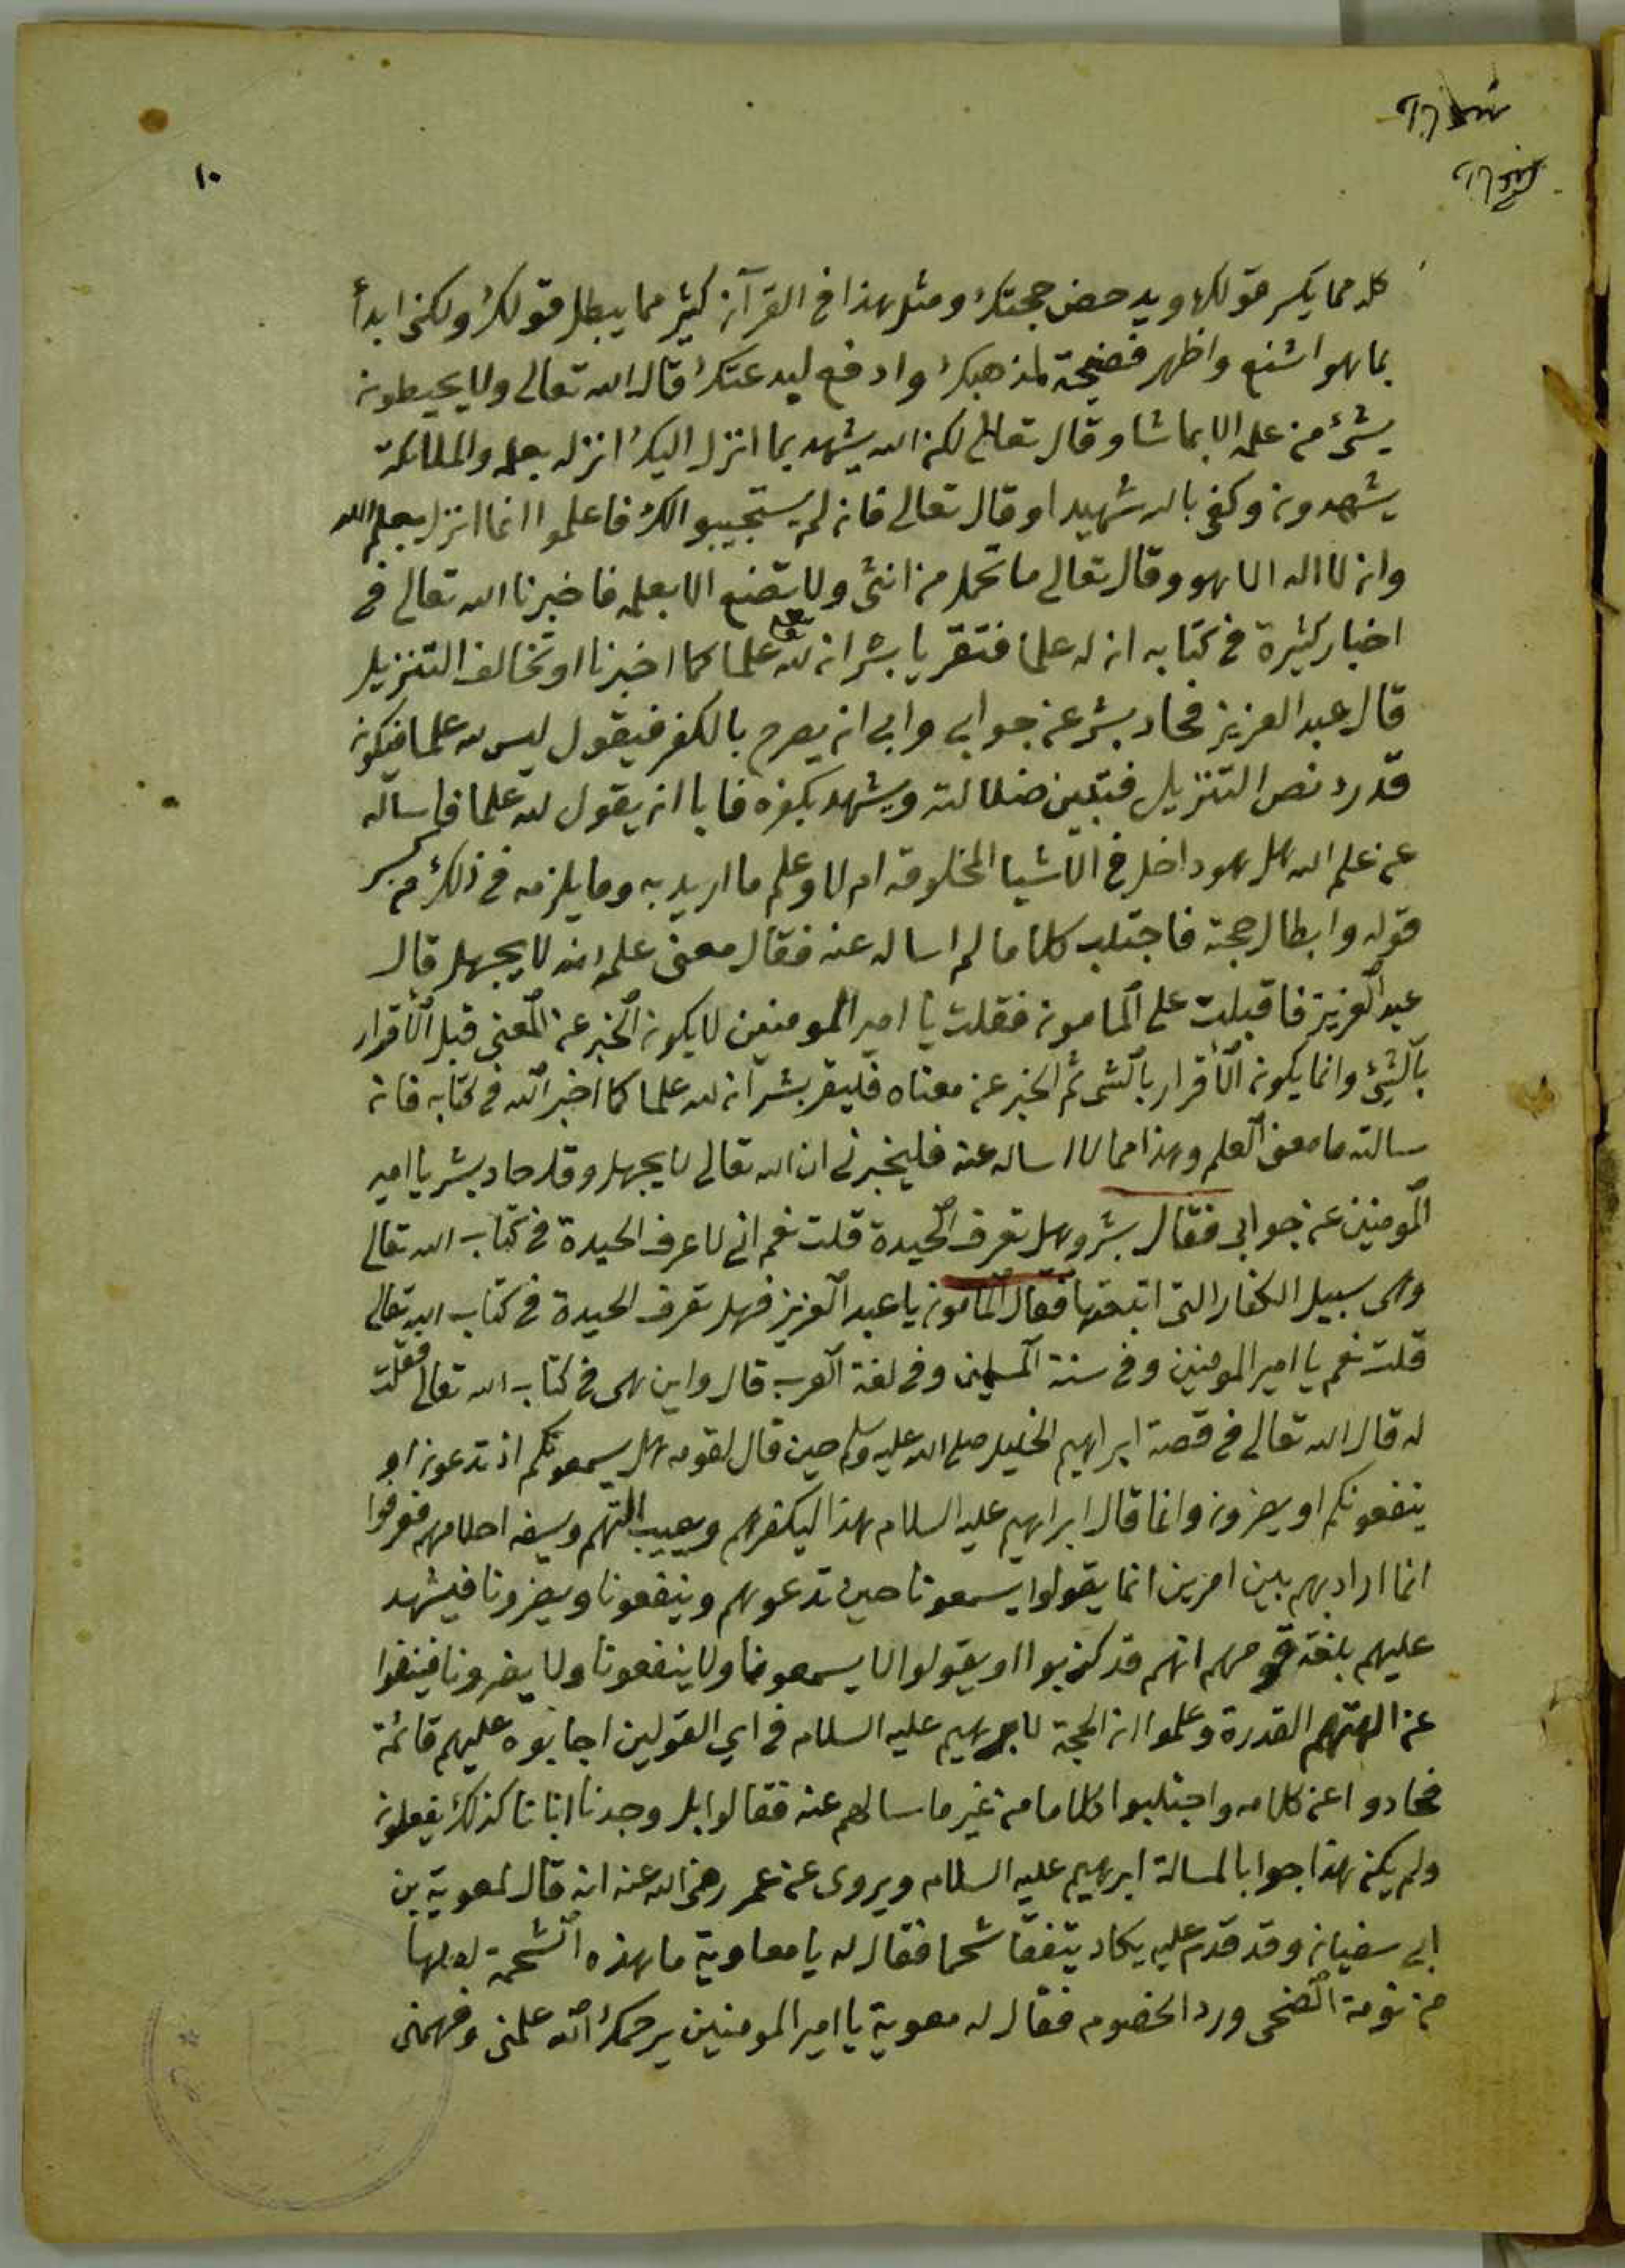 ١٠
كله مما يكسر قولك ويدحض حجتك ومثل هذا في القرآن كثير مما يبطل قولك ولكني ابدأ
بما هو اشنع واظهر فضيحة لمذهبك وادفع لبدعتك قال الله تعالى ولا يحيطون
بشئ من علمه الا بما شا وقال تعالى لكن الله يشهد بما انزل اليك انزله بعلمه والملائكة
يشهدون وكفى بالله شهيدا وقال تعالى فان لم يستجيبوا لك فاعلموا انما انزل بعلم الله
وان لا اله الا هو وقال تعالى ما تحمل من انثى ولا تضع الا بعلمه فاخبرنا الله تعالى في
اخبار كثيرة في كتابه ان له علما فتقر يا بشر ان لله علما كما اخبرنا او تخالف التنزيل
قال عبد العزيز فحاد بشر عن جوابي وابى ان يصرح بالكفر فيقول ليس لله علما فيكون
قد رد نص التنزيل فتبين ضلالته ويشهد بكفره فابا ان يقول لله علما فاساله
عن علم الله هل هو داخل في الاشيا المخلوقة ام لا وعلم ما اريد به وما يلزمه في ذلك من كسر
قوله وابطال حجة فاجتلب كلاما لم اساله عنه فقال معنى علمه انه لا يجهل قال
عبد العزيز فاقبلت على المامون فقلت يا امير المومنين لا يكون الخبر عن المعنى قبل الأقرار
بالشئ وانما يكون الأقرار بالشى ثم الخبر عن معناه فليقر بشر ان لله علما كما اخبر الله في كتابه فان
سالته ما معنى العلم وهذا مما لا اساله عنه فليخبرني ان الله تعالى لا يجهل وقد حاد بشر يا امير
المومنين عن جوابي فقال بشر وهل تعرف الحيدة قلت نعم اني لاعرف الحيدة في كتاب الله تعالى
وهى سبيل الكفار التى اتبعتها فقال المامون يا عبد العزيز فهل تعرف الحيدة في كتاب الله تعالى
قلت نعم يا امير المومنين وفي سنة المسلمين وفي لغة العرب قال واين هى في كتاب الله تعالى فقلت
له قال الله تعالى في قصة ابراهيم الخليل صلى الله عليه وسلم حين قال لقومه هل يسمعونكم اذ تدعون او
ينفعونكم او يضرون وانما قال ابراهيم عليه السلام هذا ليكفرهم ويعيب الهتهم ويسفه احلامهم فعرفوا
انما اراد بهم بين امرين انما يقولوا يسمعونا حين تدعوهم وينفعونا ويضرونا فيشهد
عليهم بلغة قومهم انهم قد كذبوا او يقولوا لا يسمعونا ولا ينفعونا ولا يضرونا فينفوا
عن الهتهم القدرة وعلموا ان الحجة لابرهيم عليه السلام في اي القولين اجابوه عليهم قائمة
فحادوا عن كلامه واجتلبوا كلاما من غير ما سالهم عنه فقالوا بل وجدنا ابانا كذلك يفعلون
ولم يكن هذا جوابا لمسالة ابرهيم عليه السلام ويروى عن عمر رضى الله عنه انه قال لمعوية بن
ابي سفيان وقد قدم عليه يكاد يتفقأ شحما فقال له يا معاوية ما هذه الشحمة لعلها
من نومة الضحى ورد الخصوم فقال له معوية يا امير المومنين يرحمك الله علمنى وفهمنى